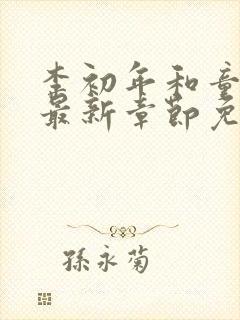 李初年和童
最新章节免
孫永菊